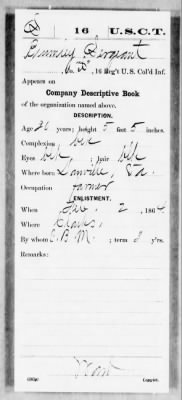 16 U.S.C.T.
Sergeant
Co. D, 16 Reg't U. S. Col'd Inf.
Appears on
Company Descriptive Book
of the organization named above.
DESCRIPTION.
Age 26 years; height 5 feet 5 inches.
Complexion blk
Eyes blk; hair blk
Where born Danville, Va.
Occupation farmer
ENLISTMENT.
When Feb 2, 1864
Where
By whom C. B. M.; term 3 y'rs.
Remarks:
Copyist.